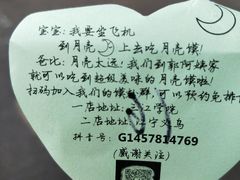 宝宝:我要坐飞机
到月亮上去吃月亮馍!
爸比:月亮太远!我们到郭阿姨家
就可以吃到超级美味的月亮馍啦!
扫码加入我们的馍粉群,可以预约免排
一店地址:江学院
二店地址:江宁义乌
抖音号:G1457814769
(感谢关注)